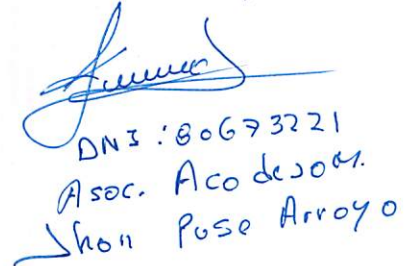 DNI: 80673221
Asoc. Acodejom.
Jhon Puse Arroyo